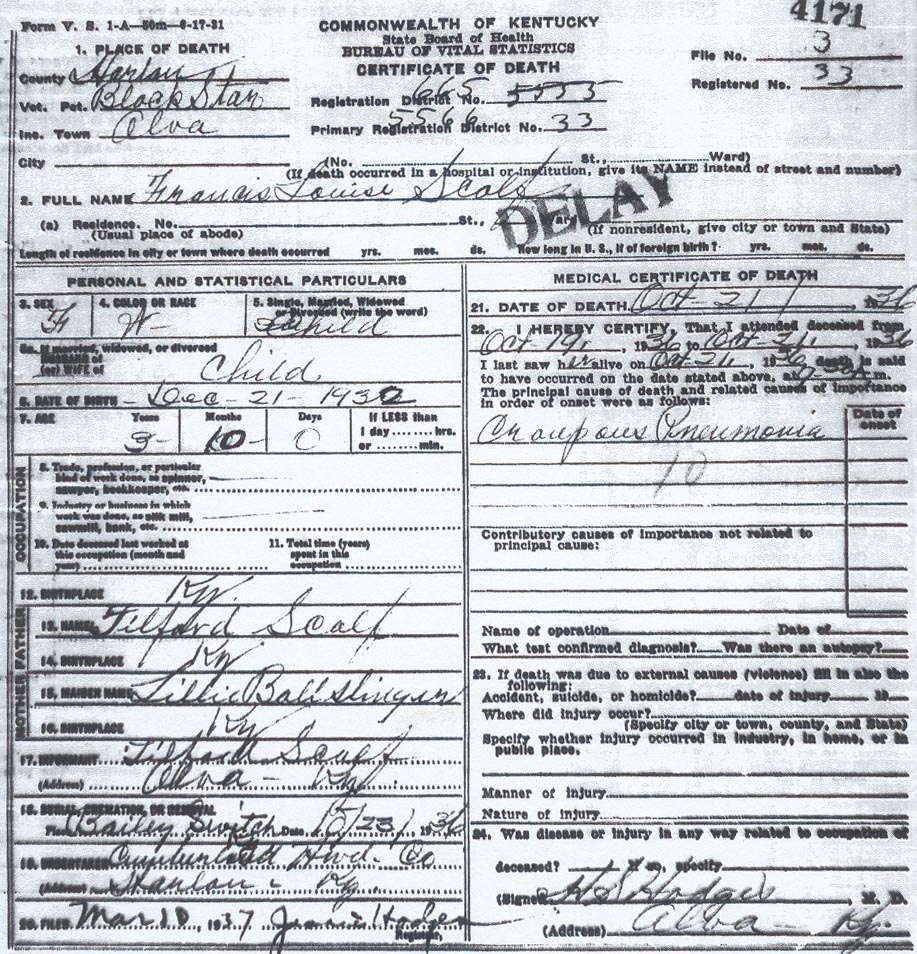 4171
Form V. S. 1-A—50m—6-17-31
COMMONWEALTH OF KENTUCKY
State Board of Health
BUREAU OF VITAL STATISTICS
CERTIFICATE OF DEATH
File No. 3
Registered No. 33
1. PLACE OF DEATH
County Harlan
Vot. Pct. Black Star
Inc. Town Alva
City
Registration District No. 665 5555
Primary Registration District No. 5566 33
(No. St., Ward)
(If death occurred in a hospital or institution, give its NAME instead of street and number)
2. FULL NAME Francis Louise Scalf
DELAY
(a) Residence. No. St., Ward
(Usual place of abode) (If nonresident, give city or town and State)
Length of residence in city or town where death occurred yrs. mos. ds. How long in U. S., if of foreign birth? yrs. mos. ds.
PERSONAL AND STATISTICAL PARTICULARS
3. SEX F
4. COLOR OR RACE W
5. Single, Married, Widowed
or Divorced (write the word)
Child
5a. If married, widowed, or divorced
HUSBAND of
(or) WIFE of Child
6. DATE OF BIRTH - Dec-21-1932
7. AGE Years Months Days If LESS than
1 day ........ hrs.
or ........ min.
3- 10- 0
OCCUPATION
8. Trade, profession, or particular
kind of work done, as spinner,
sawyer, bookkeeper, etc.
9. Industry or business in which
work was done, as silk mill,
sawmill, bank, etc.
10. Date deceased last worked at
this occupation (month and
year)
11. Total time (years)
spent in this
occupation
12. BIRTHPLACE Ky.
FATHER
13. NAME Tilford Scalf
14. BIRTHPLACE Ky
MOTHER
15. MAIDEN NAME Lillie Ball
16. BIRTHPLACE Ky
17. INFORMANT Tilford Scalf
(Address) Alva - Ky
18. BURIAL, CREMATION, OR REMOVAL
Place Bailey Switch Date 10/23/1936
19. UNDERTAKER Cumberland Hwd. Co
(Address) Harlan - Ky.
20. FILED Mar 10, 1937 Hodges
Registrar.
MEDICAL CERTIFICATE OF DEATH
21. DATE OF DEATH Oct-21, 1936
22. I HEREBY CERTIFY, That I attended deceased from
Oct-19, 1936 to Oct-21, 1936
I last saw her alive on Oct-21, 1936 death is said
to have occurred on the date stated above, at m.
The principal cause of death and related causes of importance
in order of onset were as follows:
Date of
onset
Croupous Pneumonia
10
Contributory causes of importance not related to
principal cause:
Name of operation Date of
What test confirmed diagnosis? Was there an autopsy?
23. If death was due to external causes (violence) fill in also the
following:
Accident, suicide, or homicide? date of injury 19
Where did injury occur?
(Specify city or town, county, and State)
Specify whether injury occurred in industry, in home, or in
public place.
Manner of injury
Nature of injury
24. Was disease or injury in any way related to occupation of
deceased? If so, specify
(Signed) Hodges, M. D.
(Address) Alva - Ky.